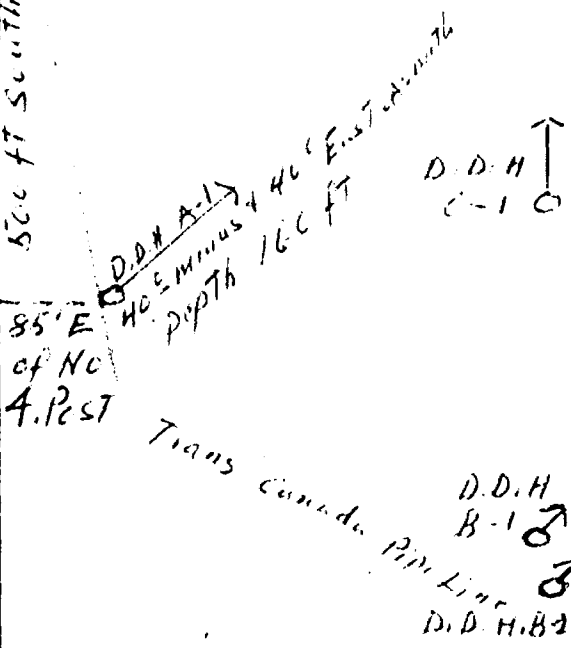 500 ft South
D.D.H A-1
40° minus & 40° East Azmith
Depth 160 ft
D.D.H
C-1
85' E
of No
4.Post
Trans Canada Pipe Line
D.D.H
B-1
D.D.H.B-2